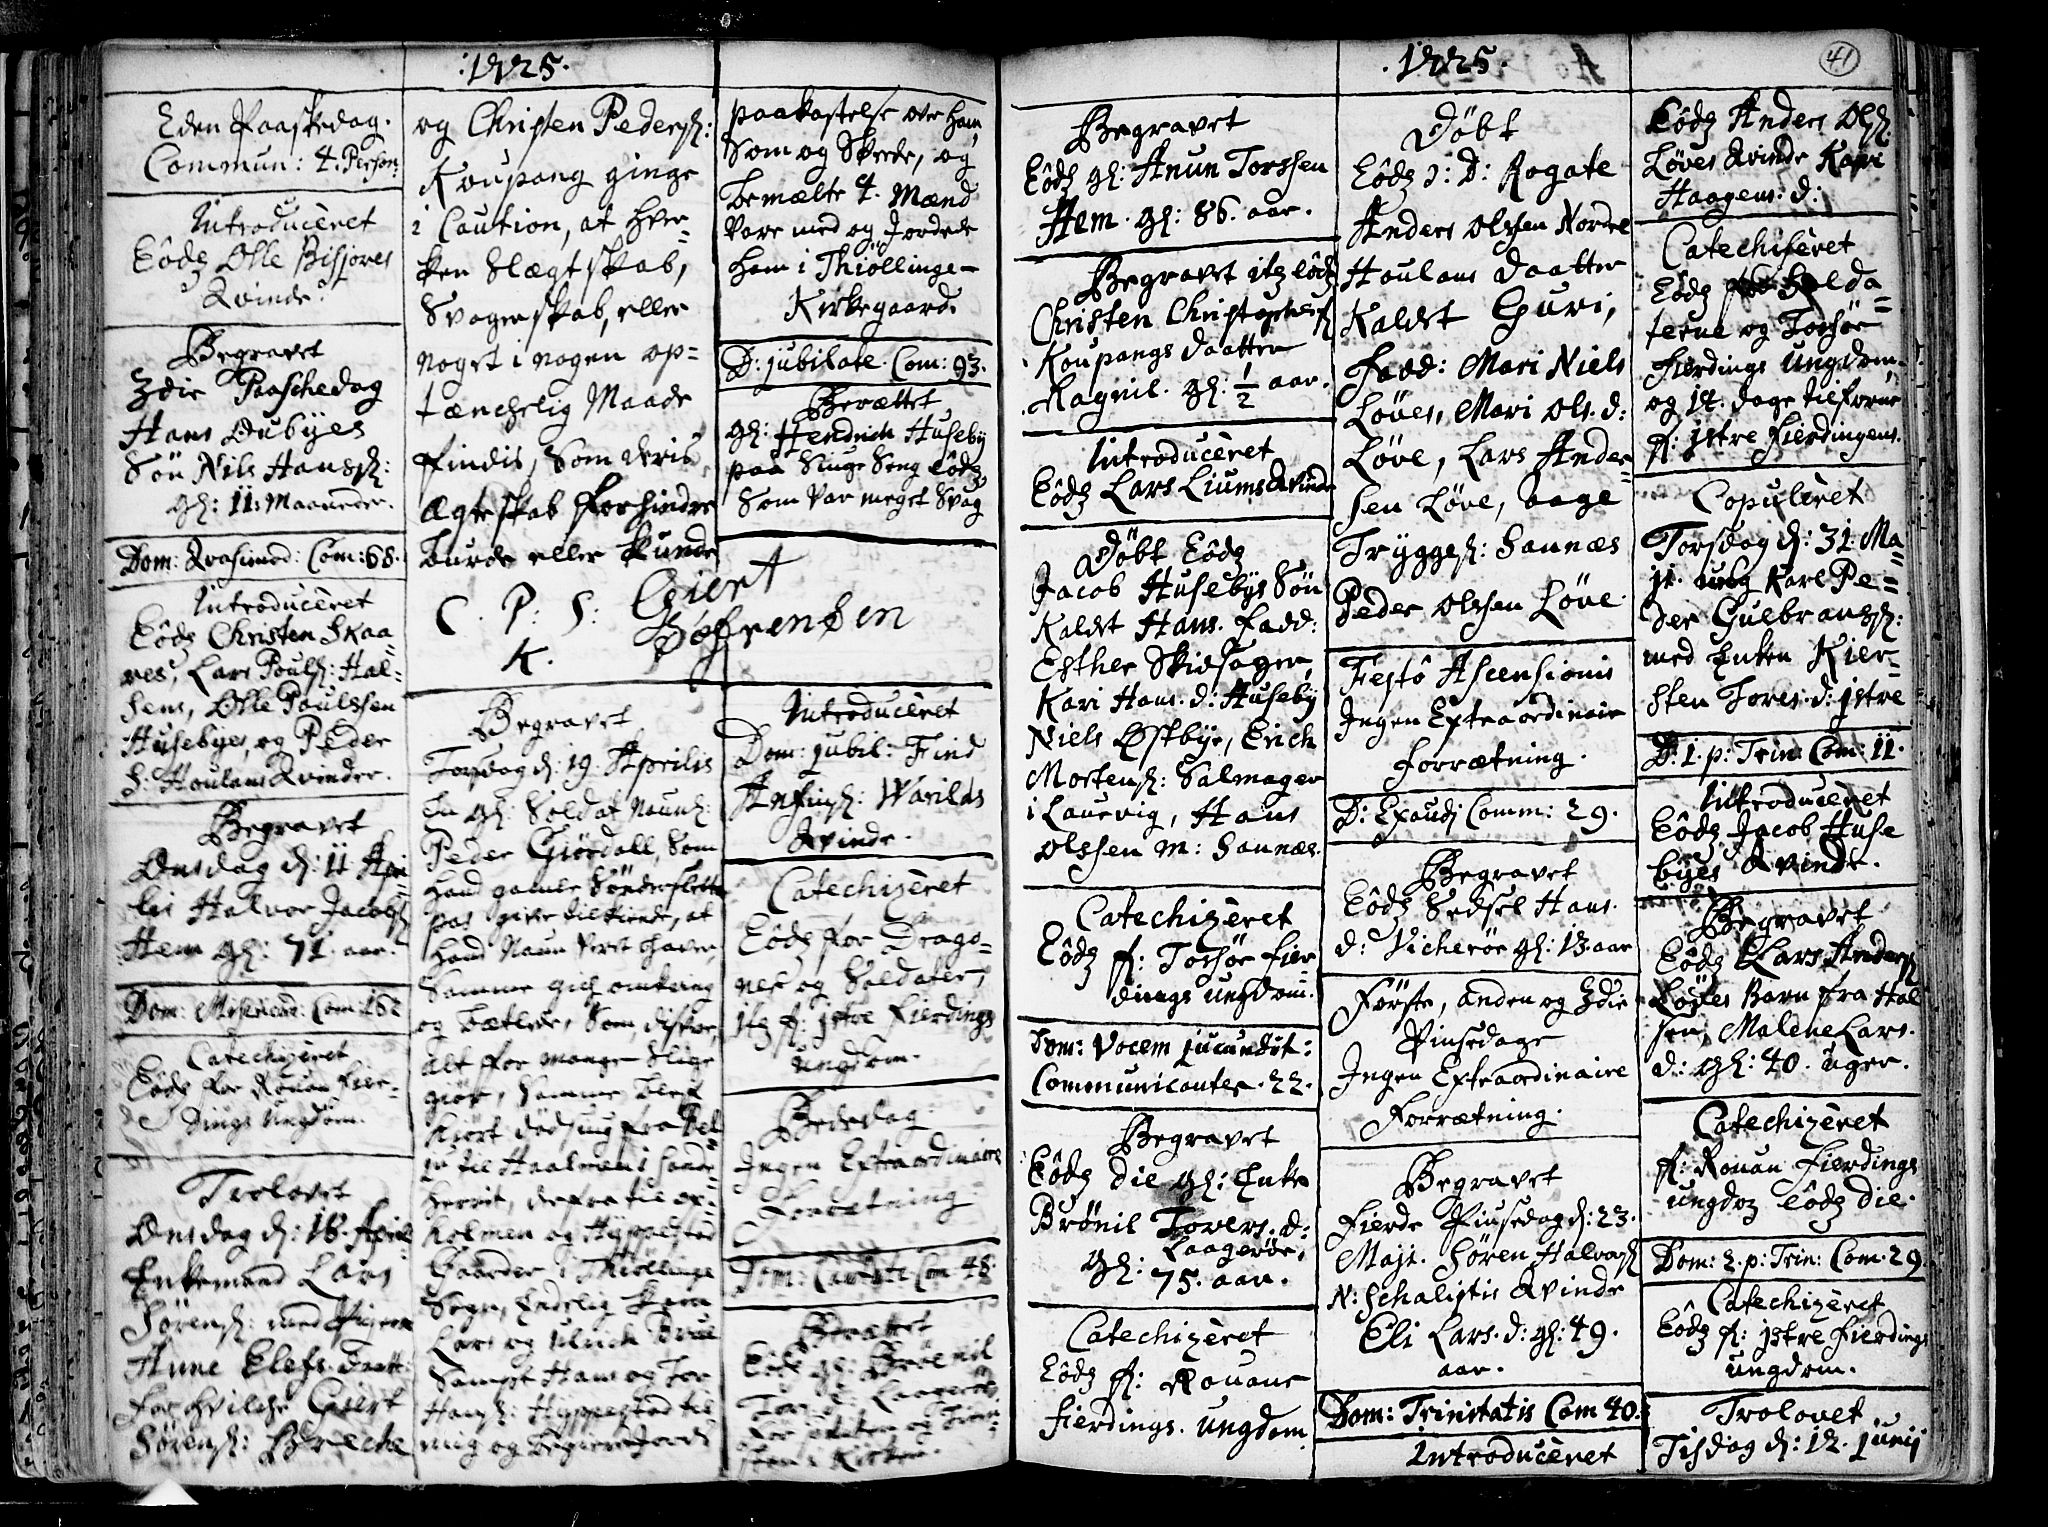 1725.
Eden Paaskedag.
Commun: 4. Person:
Introducêret
Eôdz Olle Bisjøres
Qvinde.
Begravet
3die Paaschedag
Hans Øubyes
Søn Nils Hansß:
gl: 11: Maaneder.
Dom: Qvasimod: Com: 68.
Introducêret
Eôdz Christen Skaa-
res, Lars Poulß: Hal-
sens, Olle Paulssen
Husebyes, og Peder
S: Houlans Qvinder.
Begravet
Onsdag d: 11 Apri-
lis Halvor Jacobß
Hem gl: 71. aar.
Dom: Misericord: Com: 162
Catechizêret
Eôdz for Rouan fier-
dings Ungdom.
Trolovet
Onsdag d: 18. April
Enkemand Lars
Sørenß: med Pigen
Anne Elefs. Daatt:
for hvilche Giert
Sørenß: Breche
og Christen Pederß:
Koupang ginge
i Caution, at hver-
ken Slægtskab,
Svogerskab, eller
noget i nogen op-
tænchelig Maade
findis, som deris
Ægteskab forhindre
burde eller kunde
C. P: S: Giert
K. Søfrensen
Begravet
Torsdag d: 19 Aprilis
En gl: Soldat Naunl:
Peder Giørdall, som
hand gamle Sønderslette
pas giver tilkiende, at
hand Naun veret haver,
Samme gich omkring
og betlede, som disver,
alt for mange slige
giør, Samme blef
kiørt dødsiug fra Bel-
je til Haalmen i Sande-
herrit, derfra til
holmen og Hyppestad
Gaarder i Thiøllinge
Sogn, Endelig kom
Lars og Ulrich Brue
Sampt Hans og Tor
Hansß: Hyppestad til
mig og begierede Jords
paakastelse over ham,
Som og Skeede, og
bemælte 4. Mænd
vare med og Jordede
ham i Thiøllinge-
Kirkegaard.
D: jubilate. Com: 93.
Berættet
gl: Hendrich Huseby
paa Siuge Seng Eôdz
Som var meget Svag
Introducêret
Dom: jubil: Find
Anfinß: Warilds
Qvinde.
Catechizêret
Eôdz for Drago-
ner og Soldater,
itz f: jstre Fierdings
Ungdom.
Bededag
Ingen Extraordinaire
Forretning
Dom: Cantate Com 48.
Berættet
Eôdz gl: Brønil
Tor. d: Laagerøe,
1725. 41
Begravet
Eôdz gl: Anun Torssen
Hem. gl: 86. aar.
Begravet itz Eôdz
Christen Christophersß
Koupangs Daatter
Magnil. gl: 1/2 aar.
Introducêret
Eôdz Lars Liums Qvinde
Døbt Eôdz
Jacob Husebys Søn
Kaldet Hans. Fadd:
Esther Skidsager,
Kari Hans. d: Huseby
Niels Østbye, Erich
Mortenß: Salmager
i Laurvig, Hans
Olssen M: Saunæs.
Catechizêret
Eôdz f: Torsøe Fier
dings Ungdom.
Dom: Vocem jucundit:
Communicanter. 22.
Begravet
Eôdz die gl: Enke
Brônil Torers. d:
Laagerøe,
gl: 75. aar.
Catechizêret
Eôdz f: Rouans
fierdings. Ungdom.
Døbt
Eôdz ɔ: D: Rogate
Anders Olssen Nordre
Houlans Daatter
Kaldet Guri,
Fadd: Mari Niels
Løves, Mari Ols. d:
Løve, Lars Ander-
sen Løve, Aage
Tryggeß: Saunæs
Peder Olssen Løve.
Festô Ascensionis
Ingen Extraordinair
Forrætning.
D: Exaudi Comm: 29.
Begravet
Eôdz Sedsel Hans.
d: Vicherøe gl: 13. aar
Første, anden og 3die
Pinsedage
Ingen Extraordinaire
Forrætning.
Begravet
Fierde Pinsedag d: 23.
Maji. Søren Halvorß
N: Schalistis Qvinde
Eli Lars. d: gl: 49.
aar.
Dom: Trinitatis Com 40.
Introducêret
Eôdz Anders Olß:
Løves Qvinde Kari
Haagens. d:
Catechizêret
Eôdz for Solda-
terne og Torsøe
Fierdings Ungdom.
og 14. dage tilforne
f: jstre Fierdingens.
Copulêret
Torsdag d: 31. Ma-
ji. ung Karl Pe-
der Gulbransß:
med Enken Kier-
sten Tores. d: jstre
D: 1. p: Trin: Com: 11.
Introducêret
Eôdz Jacob Huse
byes Qvinde.
Begravet
Eôdz Lars Andersß
Løves Barn fra Hal
sen, Malene Lars.
d: gl: 40. uger.
Catechizêret
f: Rouan Fierdings
ungdoz Eôdz die.
Dom: 2. p: Trin: Com. 29
Catechizêret
Eôdz f: jstre Fierdings
ungdom.
Trolovet
Tisdag d: 12. junij